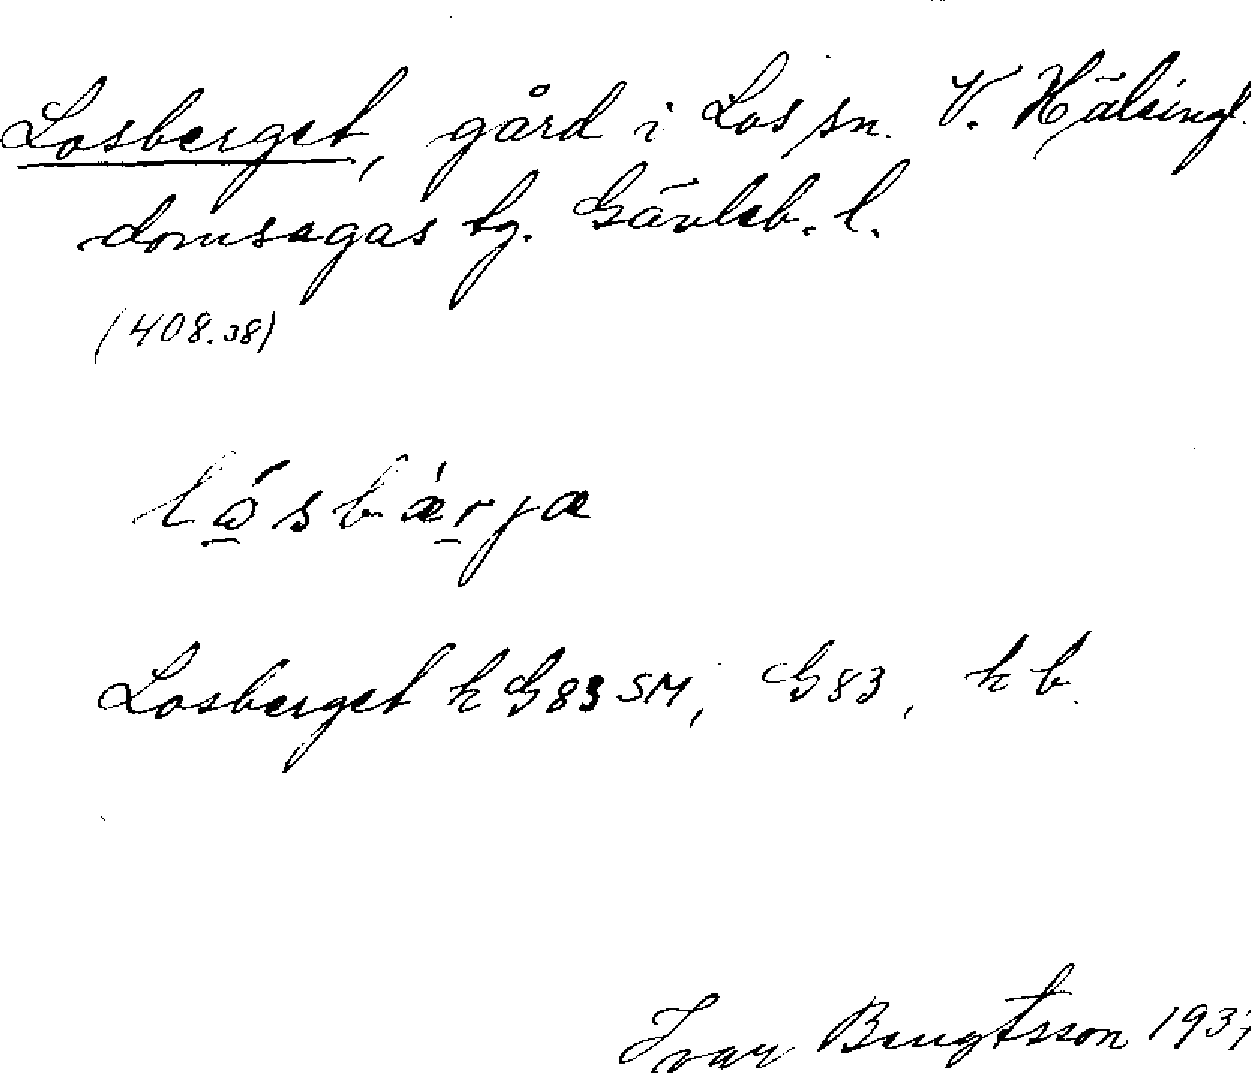 Losberget, gård i Los sn. V. Hälsingl.
domsagas tg. Gävleb. l.
(408.38)
låsbärja
Losberget k G83 SM, G83, kb.
Ivar Bengtsson 193